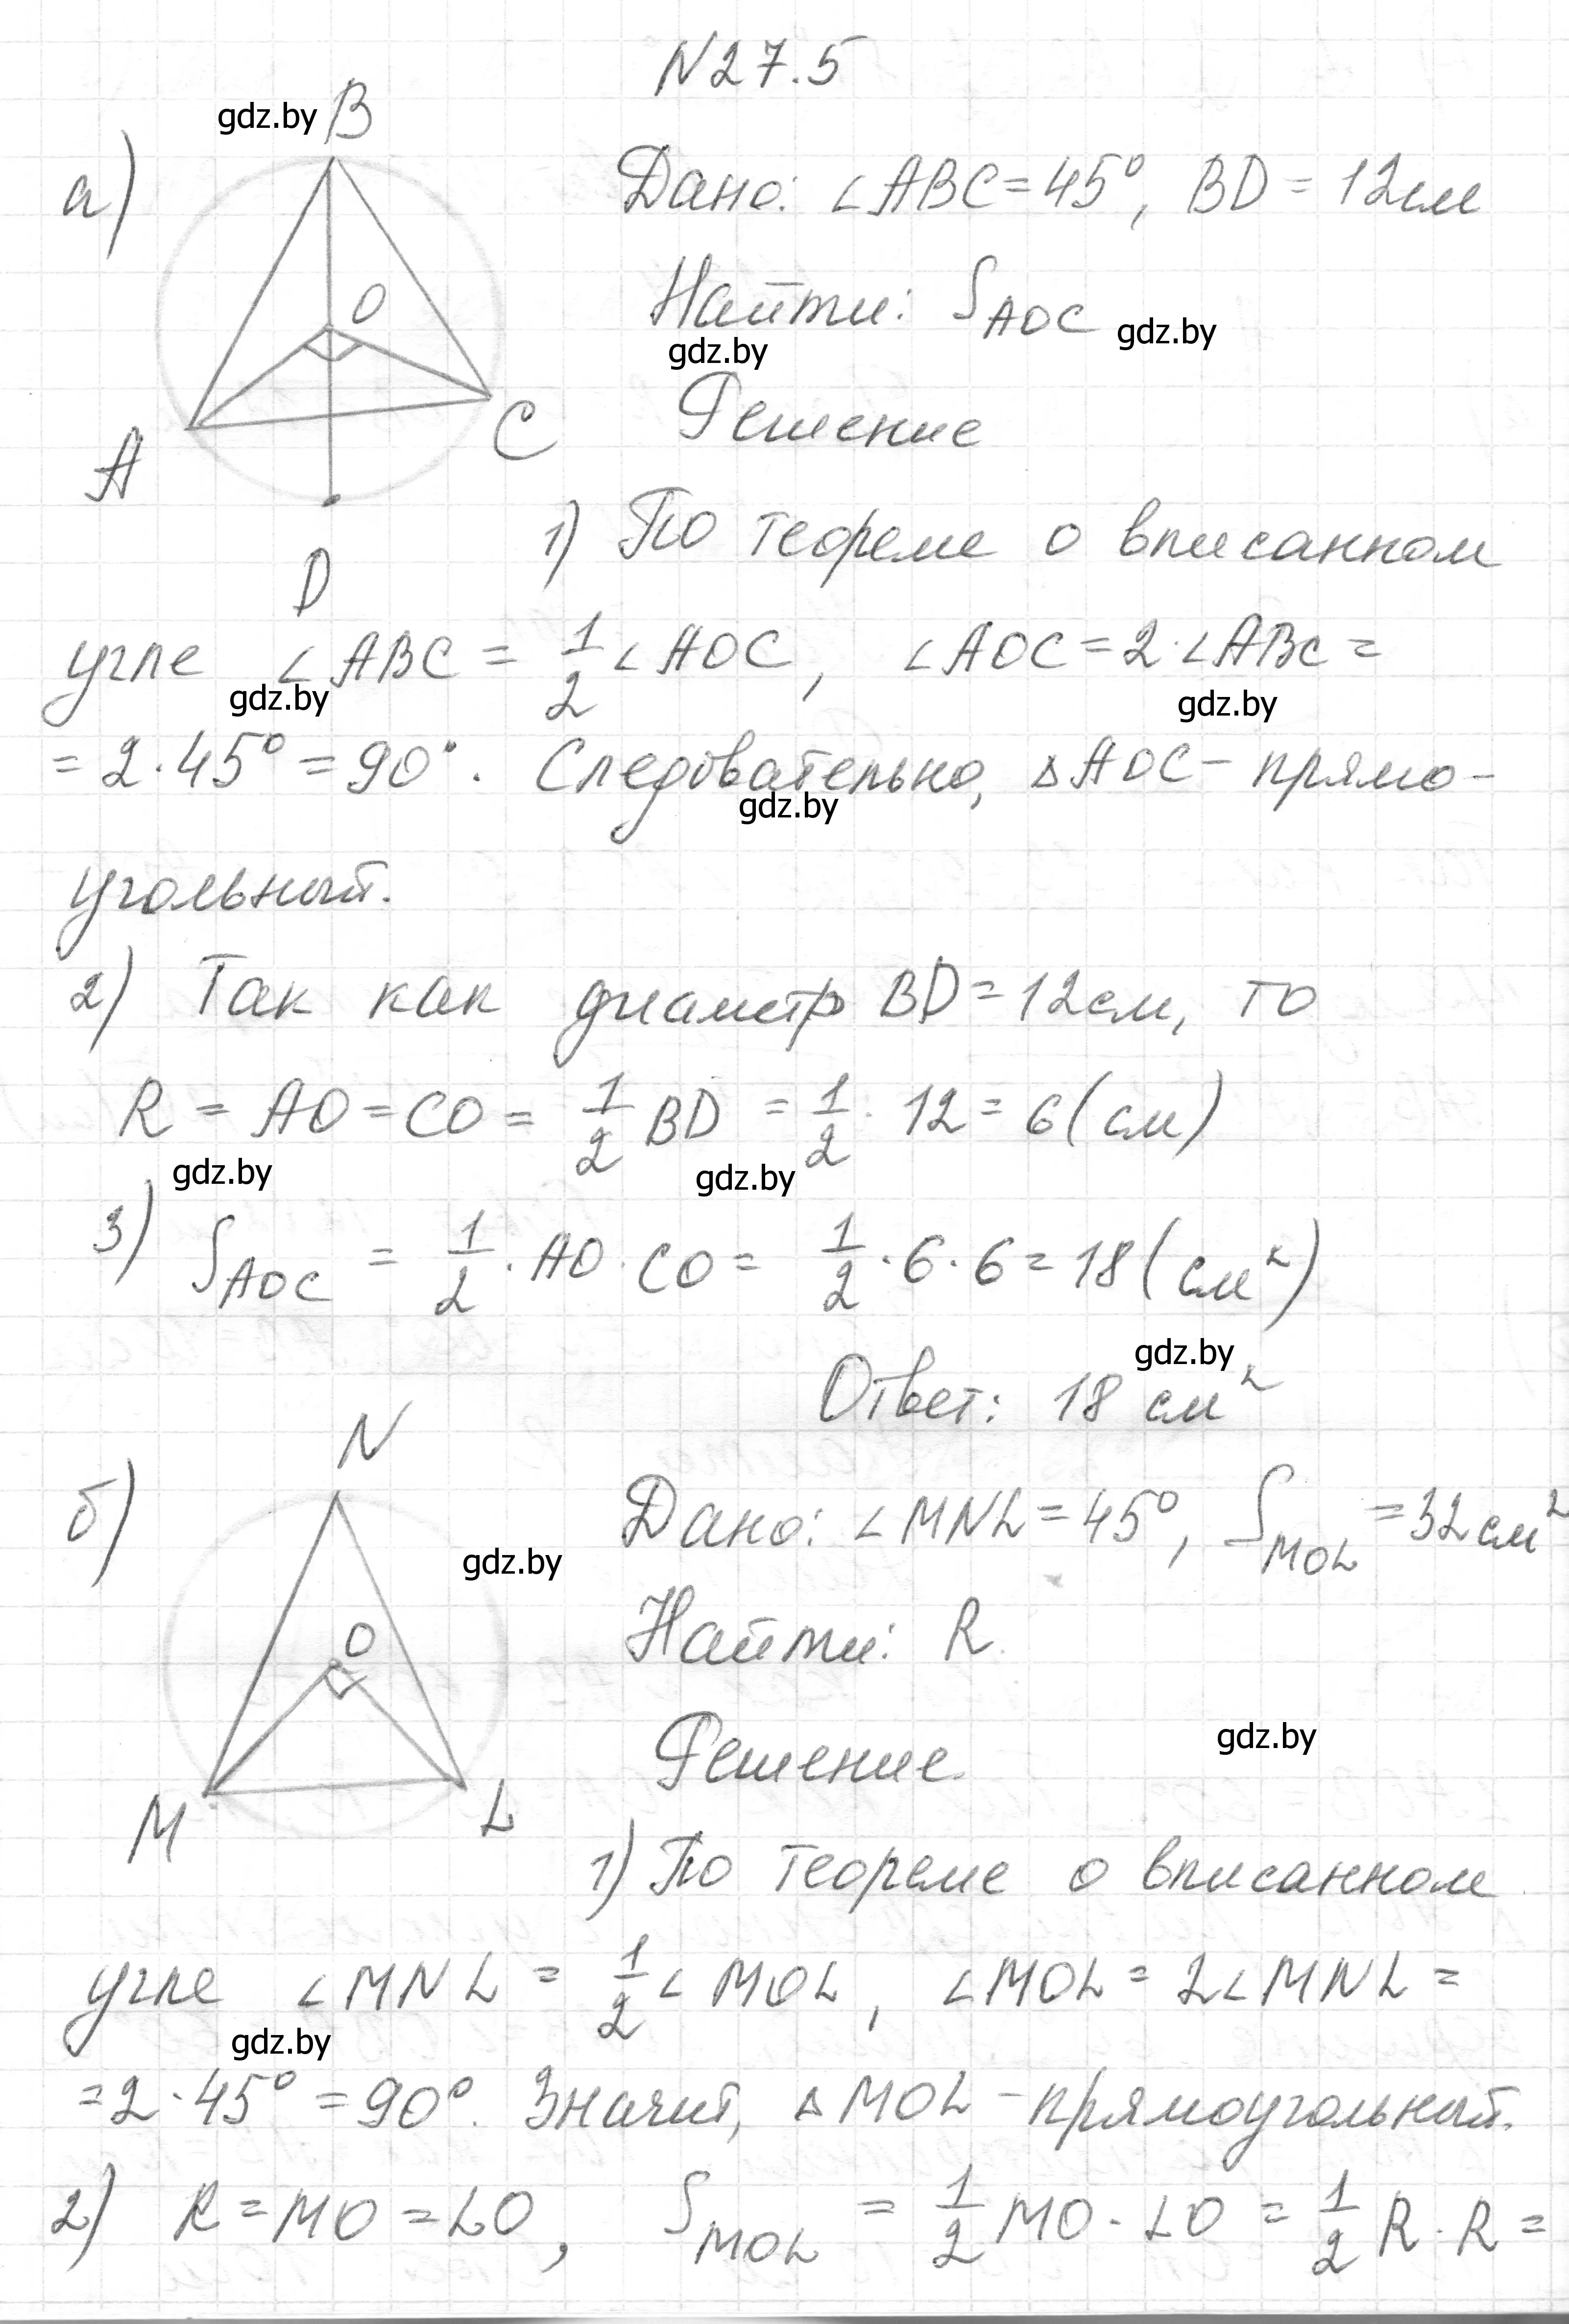 N27.5
gdz.by
B
а)
Дано: ∠ABC=45°, BD = 12см
O
Найти: S_AOC
gdz.by
gdz.by
Решение
A
C
D
1) По теореме о вписанном
угле ∠ABC = 1/2 ∠AOC, ∠AOC = 2·∠ABC =
gdz.by
gdz.by
= 2·45° = 90°. Следовательно, △AOC - прямо-
gdz.by
угольный.
2) Так как диаметр BD = 12см, то
R = AO = CO = 1/2 BD = 1/2 · 12 = 6 (см)
gdz.by
gdz.by
3) S_AOC = 1/2 · AO · CO = 1/2 · 6 · 6 = 18 (см²)
gdz.by
Ответ: 18 см²
N
б)
Дано: ∠MNL = 45°, S_MOL = 32см²
gdz.by
O
Найти: R.
gdz.by
Решение.
M
L
1) По теореме о вписанном
угле ∠MNL = 1/2 ∠MOL, ∠MOL = 2∠MNL =
gdz.by
= 2·45° = 90°. Значит, △MOL - прямоугольный.
2) R = MO = LO, S_MOL = 1/2 MO · LO = 1/2 R · R =